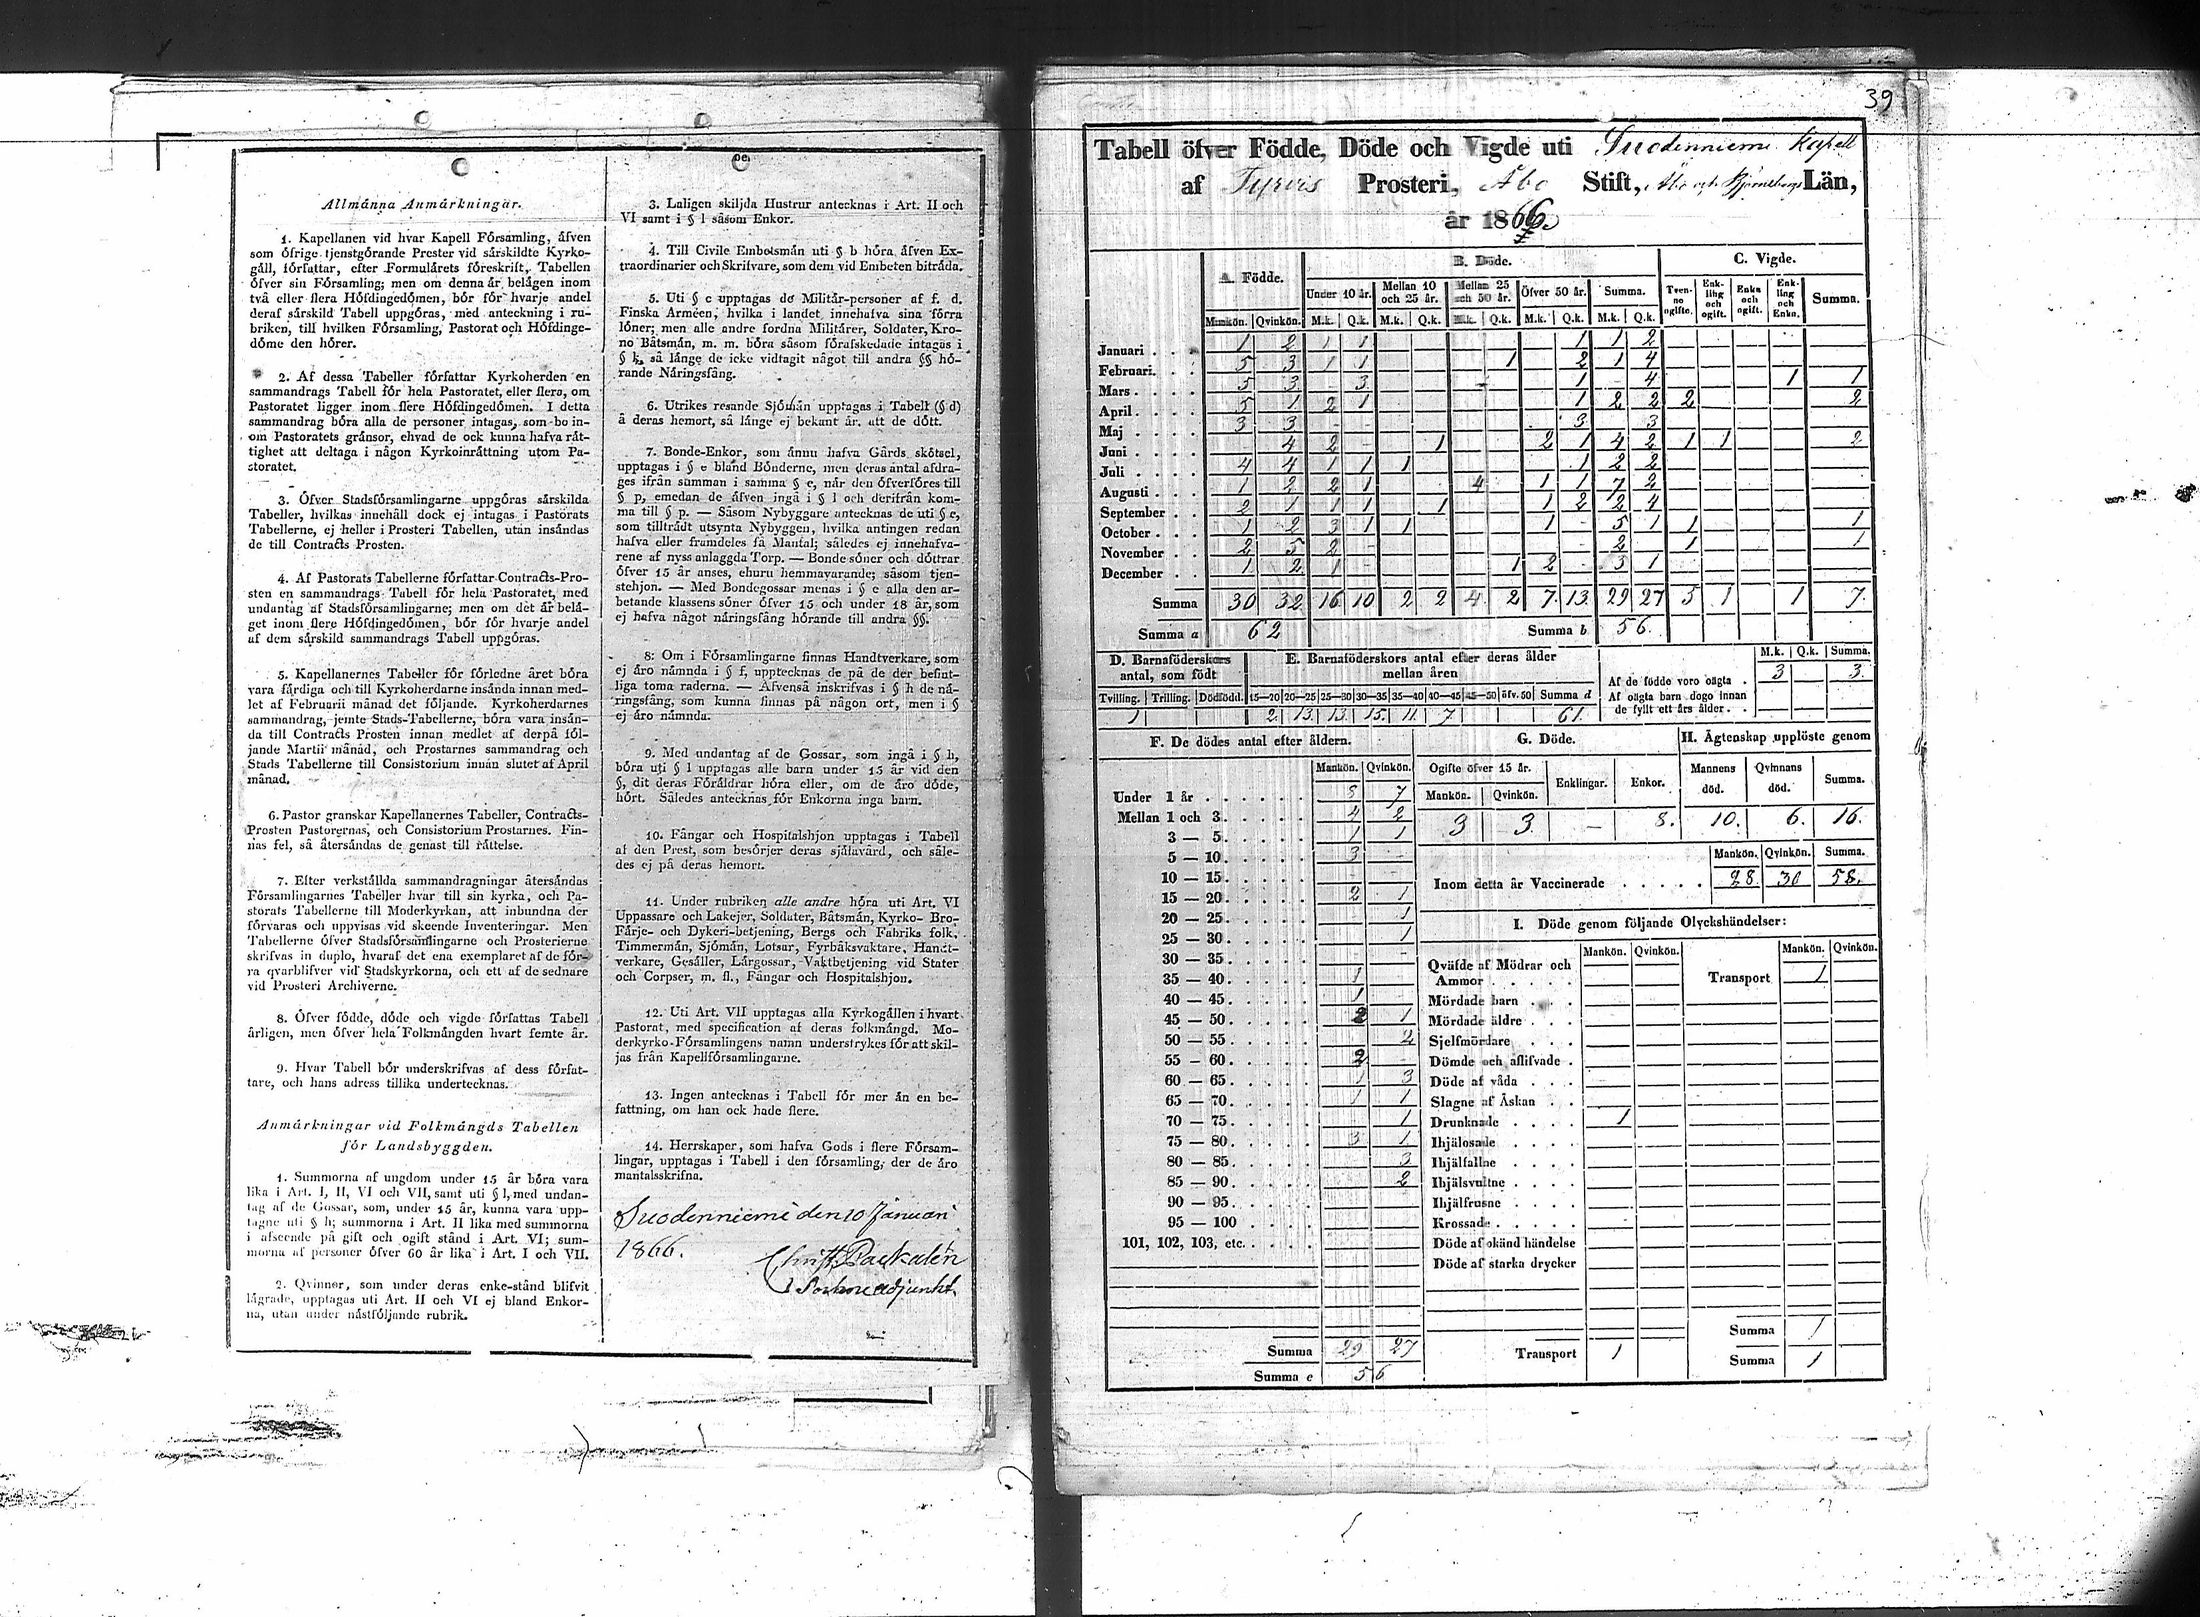 Allmänna Anmärkningar.
1. Kapellanen vid hvar Kapell Församling, äfven
som öfrige tjenstgörande Prester vid särskildte Kyrko-
gäll, författar, efter Formulärets föreskrift, Tabellen
öfver sin Församling; men om denna är belägen inom
två eller flera Höfdingedömen, bör för hvarje andel
deraf särskild Tabell uppgöras, med anteckning i ru-
briken, till hvilken Församling, Pastorat och Höfdinge-
döme den hörer.
2. Af dessa Tabeller författar Kyrkoherden en
sammandrags Tabell för hela Pastoratet, eller flera, om
Pastoratet ligger inom flere Höfdingedömen. I detta
sammandrag böra alla de personer intagas, som bo in-
om Pastoratets gränsor, ehvad de ock kunna hafva rät-
tighet att deltaga i någon Kyrkoinrättning utom Pa-
storatet.
3. Öfver Stadsförsamlingarne uppgöras särskilda
Tabeller, hvilkas innehåll dock ej intagas i Pastorats
Tabellerne, ej heller i Prosteri Tabellen, utan insändas
de till Contracts Prosten.
4. Af Pastorats Tabellerne författar Contracts-Pro-
sten en sammandrags Tabell för hela Pastoratet, med
undantag af Stadsförsamlingarne; men om det är belä-
get inom flere Höfdingedömen, bör för hvarje andel
af dem särskild sammandrags Tabell uppgöras.
5. Kapellanernes Tabeller för förledne året böra
vara färdiga och till Kyrkoherdarne insända innan med-
let af Februarii månad det följande. Kyrkoherdarnes
sammandrag, jemte Stads-Tabellerne, böra vara insän-
da till Contracts Prosten innan medlet af derpå föl-
jande Martii månad, och Prostarnes sammandrag och
Stads Tabellerne till Consistorium innan slutet af April
månad.
6. Pastor granskar Kapellanernes Tabeller, Contracts-
Prosten Pastorernas, och Consistorium Prostarnes. Fin-
nas fel, så återsändas de genast till rättelse.
7. Efter verkställda sammandragningar återsändas
Församlingarnes Tabeller hvar till sin kyrka, och Pa-
storats Tabellerne till Moderkyrkan, att inbundna der
förvaras och uppvisas vid skeende Inventeringar. Men
Tabellerne öfver Stadsförsamlingarne och Prosterierne
skrifvas in duplo, hvaraf det ena exemplaret af de för-
ra qvarblifver vid Stadskyrkorna, och ett af de sednare
vid Prosteri Archiverne.
8. Öfver födde, döde och vigde författas Tabell
årligen, men öfver hela Folkmängden hvart femte år.
9. Hvar Tabell bör underskrifvas af dess förfat-
tare, och hans adress tillika undertecknas.
Anmärkningar vid Folkmängds Tabellen
för Landsbyggden.
1. Summorna af ungdom under 15 år böra vara
lika i Art. I, II, VI och VII, samt uti § l, med undan-
tag af de Gossar, som, under 15 år, kunna vara upp-
tagne uti § h; summorna i Art. II lika med summorna
i afseende på gift och ogift stånd i Art. VI; sum-
morna af personer öfver 60 år lika i Art. I och VII.
2. Qvinnor, som under deras enke-stånd blifvit
lägrade, upptagas uti Art. II och VI ej bland Enkor-
na, utan under nästföljande rubrik.
3. Laligen skiljda Hustrur antecknas i Art. II och
VI samt i § l såsom Enkor.
4. Till Civile Embetsmän uti § b höra äfven Ex-
traordinarier och Skrifvare, som dem vid Embeten biträda.
5. Uti § c upptagas de Militär-personer af f. d.
Finska Arméen, hvilka i landet innehafva sina förra
löner; men alle andre fordna Militärer, Soldater, Kro-
no Båtsmän, m. m. böra såsom förafskedade intagas i
§ k, så länge de icke vidtagit något till andra §§ hö-
rande Näringsfång.
6. Utrikes resande Sjömän upptagas i Tabell (§ d)
å deras hemort, så länge ej bekant är, att de dött.
7. Bonde-Enkor, som ännu hafva Gårds skötsel,
upptagas i § e bland Bönderne, men deras antal afdra-
ges ifrån summan i samma § e, när den öfverföres till
§ p, emedan de äfven ingå i § l och derifrån kom-
ma till § p. — Såsom Nybyggare antecknas de uti § e,
som tillträdt utsynta Nybyggen, hvilka antingen redan
hafva eller framdeles få Mantal; således ej innehafva-
rene af nyss anlaggda Torp. — Bonde söner och döttrar
öfver 15 år anses, ehuru hemmavarande; såsom tjen-
stehjon. — Med Bondegossar menas i § e alla den ar-
betande klassens söner öfver 15 och under 18 år, som
ej hafva något näringsfång hörande till andra §§.
8: Om i Församlingarne finnas Handtverkare, som
ej äro nämnda i § f, upptecknas de på de der befint-
liga toma raderna. — Äfvenså inskrifvas i § h de nä-
ringsfång, som kunna finnas på någon ort, men i §
ej äro nämnda.
9. Med undantag af de Gossar, som ingå i § h,
böra uti § l upptagas alle barn under 15 år vid den
§, dit deras Föräldrar höra eller, om de äro döde,
hört. Således antecknas för Enkorna inga barn.
10. Fångar och Hospitalshjon upptagas i Tabell
af den Prest, som besörjer deras själavård, och såle-
des ej på deras hemort.
11. Under rubriken alle andre höra uti Art. VI
Uppassare och Lakejer, Soldater, Båtsmän, Kyrko- Bro-
Färje- och Dykeri-betjening, Bergs och Fabriks folk,
Timmermän, Sjömän, Lotsar, Fyrbåksvaktare, Handt-
verkare, Gesäller, Lärgossar, Vaktbetjening vid Stater
och Corpser, m. fl., Fångar och Hospitalshjon.
12. Uti Art. VII upptagas alla Kyrkogällen i hvart
Pastorat, med specification af deras folkmängd. Mo-
derkyrko-Församlingens namn understrykes för att skil-
jas från Kapellförsamlingarne.
13. Ingen antecknas i Tabell för mer än en be-
fattning, om han ock hade flere.
14. Herrskaper, som hafva Gods i flere Försam-
lingar, upptagas i Tabell i den församling, der de äro
mantalsskrifna.
Suodenniemi den 10 Januari
1866.
39
Tabell öfver Födde, Döde och Vigde uti Suodenniemi Kapell
af Tyrvis Prosteri, Åbo Stift, Åbo och Björneborgs Län,
år 1866.
A. Födde. B. Döde. C. Vigde.
Under 10 år. Mellan 10 och 25 år. Mellan 25 och 50 år. Öfver 50 år. Summa. Tvenno ogifte. Enkling och ogift. Enka och ogift. Enkling och Enka. Summa.
Mankön. Qvinkön. M.k. Q.k. M.k. Q.k. M.k. Q.k. M.k. Q.k. M.k. Q.k.
Januari . . . 1 2 1 1 1 1 2
Februari. . . 5 3 1 1 1 2 1 4
Mars . . . 5 3 - 3 1 - 4 1 1
April . . . 5 1 2 1 1 2 2 2 2
Maj . . . 3 3 - - 3 3
Juni . . . 4 2 - 1 2 1 4 2 1 1 2
Juli . . . 4 4 1 1 1 1 2 2
Augusti . . . 1 2 2 1 4 1 1 7 2
September . . 2 1 1 1 1 1 2 2 4
October . . 1 2 3 1 1 1 - 5 1 1 1
November . . 2 5 2 - - - 2 - 1 1
December . . 1 2 1 - 1 2 - 3 1
Summa 30 32 16 10 2 2 4 2 7 13 29 27 5 1 1 7.
Summa a 62 Summa b 56.
D. Barnaföderskors antal, som födt
Tvilling. Trilling. Dödfödd.
1
E. Barnaföderskors antal efter deras ålder mellan åren
15—20 20—25 25—30 30—35 35—40 40—45 45—50 öfv. 50 Summa d
2. 13. 13. 15. 11. 7. 61.
M.k. Q.k. Summa.
Af de födde voro oägta . 3 3.
Af oägta barn dogo innan
de fyllt ett års ålder. .
F. De dödes antal efter åldern.
Mankön. Qvinkön.
Under 1 år . . . 8 7
Mellan 1 och 3. . . 4 2
3 — 5. . . 1 1
5 — 10. . . 3 -
10 — 15. . . - -
15 — 20. . . 2 1
20 — 25. . . 1
25 — 30. . . 1
30 — 35. . . - -
35 — 40. . . 1
40 — 45. . . 1
45 — 50. . . 2 1
50 — 55. . . 2
55 — 60. . . 2 -
60 — 65. . . 1 3
65 — 70. . . 1 1
70 — 75. . . 1
75 — 80. . . 3 1
80 — 85. . . 3
85 — 90. . . 2
90 — 95. . .
95 — 100 . . .
101, 102, 103, etc. . . .
Summa 29 27
Summa e 56
G. Döde.
Ogifte öfver 15 år. Enklingar. Enkor.
Mankön. Qvinkön.
3 3. — 8.
H. Ägtenskap upplöste genom
Mannens död. Qvinnans död. Summa.
10. 6. 16.
Mankön. Qvinkön. Summa.
Inom detta år Vaccinerade . . . . . 28 30 58.
I. Döde genom följande Olyckshändelser:
Mankön. Qvinkön. Mankön. Qvinkön.
Qväfde af Mödrar och
Ammor . . . . . Transport 1
Mördade barn . . .
Mördade äldre . . .
Sjelfmördare . . .
Dömde och aflifvade .
Döde af våda . . .
Slagne af Åskan . .
Drunknade . . . . 1
Ihjälosade . . . .
Ihjälfallne . . . .
Ihjälsvultne . . . .
Ihjälfrusne . . . .
Krossade . . . . .
Döde af okänd händelse
Döde af starka drycker
Summa 1
Transport 1 Summa 1